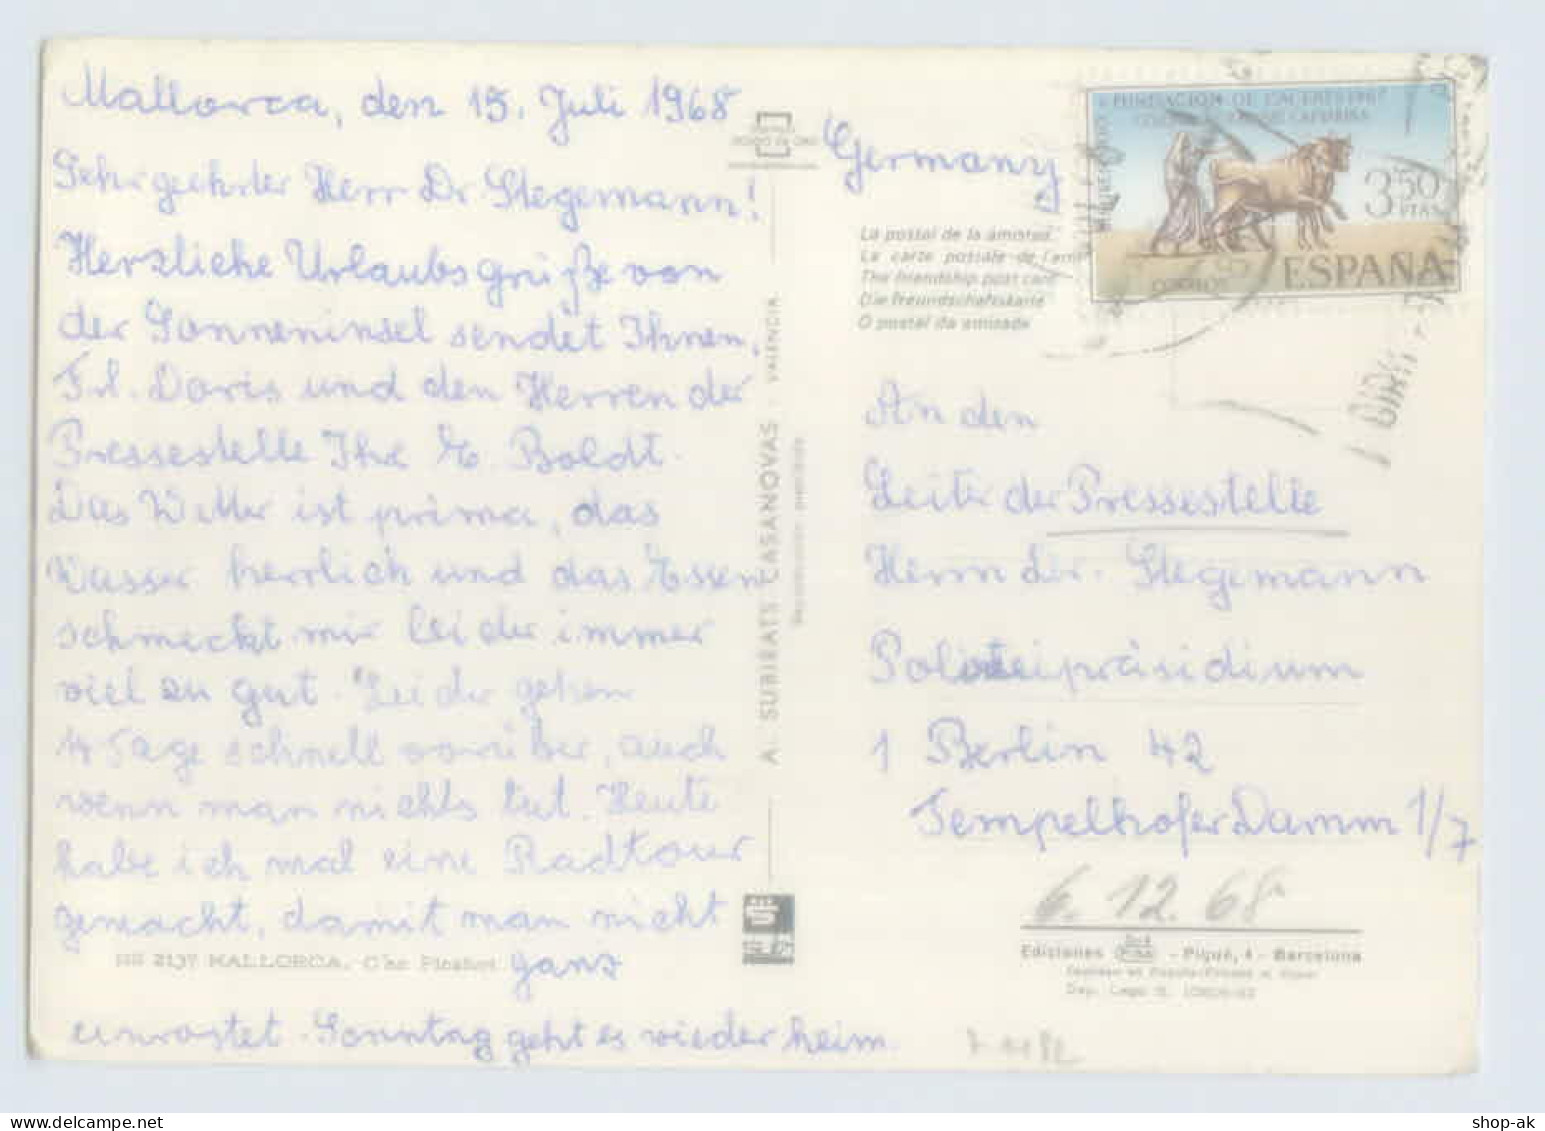 Mallorca, den 15. Juli 1968
Sehr geehrter Herr Dr. Stegemann!
Herzliche Urlaubsgrüße von
der Sonneninsel sendet Ihnen,
Frl. Doris und den Herren der
Pressestelle Ihr E. Boldt.
Das Wetter ist prima, das
Wasser herrlich und das Essen
schmeckt mir leider immer
viel zu gut. Leider gehen
14 Tage schnell vorüber, auch
wenn man nichts tut. Heute
habe ich mal eine Radtour
gemacht, damit man nicht
ganz
einrostet. Sonntag geht es wieder heim.
2137 MALLORCA. C'an Picafort
A. SUBIRATS CASANOVAS - VALENCIA
Germany
FUNDACION DE CACERES 1967
3,50
PTAS
CORREOS
ESPAÑA
La postal de la amistad
La carte postale de l'ami
The friendship post card
Die freundschaftskarte
O postal da amizade
An den
Leiter der Pressestelle
Herrn Dr. Stegemann
Polizeipräsidium
1 Berlin 42
Tempelhofer Damm 1/7
6.12.68
Ediciones - Piqué, 4 - Barcelona
shop-ak.com